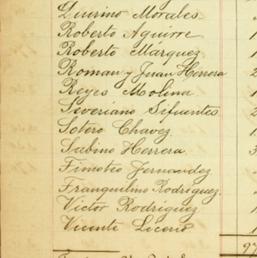 Quirino Morales
Roberto Aguirre
Roberto Márquez
Roman y Juan Herrera
Reyes Molina
Severiano Sifuentes
Sotero Chavez
Sabino Herrera
Timoteo Fernandez
Tranquilino Rodriguez
Victor Rodriguez
Vicente Lucero
97